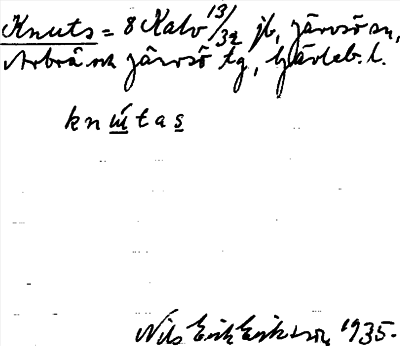 Knuts = 8 Kalv 13/32 jb, Järvsö sn,
Arbrå och Järvsö tg, Gävleb. l.
knu̲tas̲
Nils Erik Eriksson 1935.